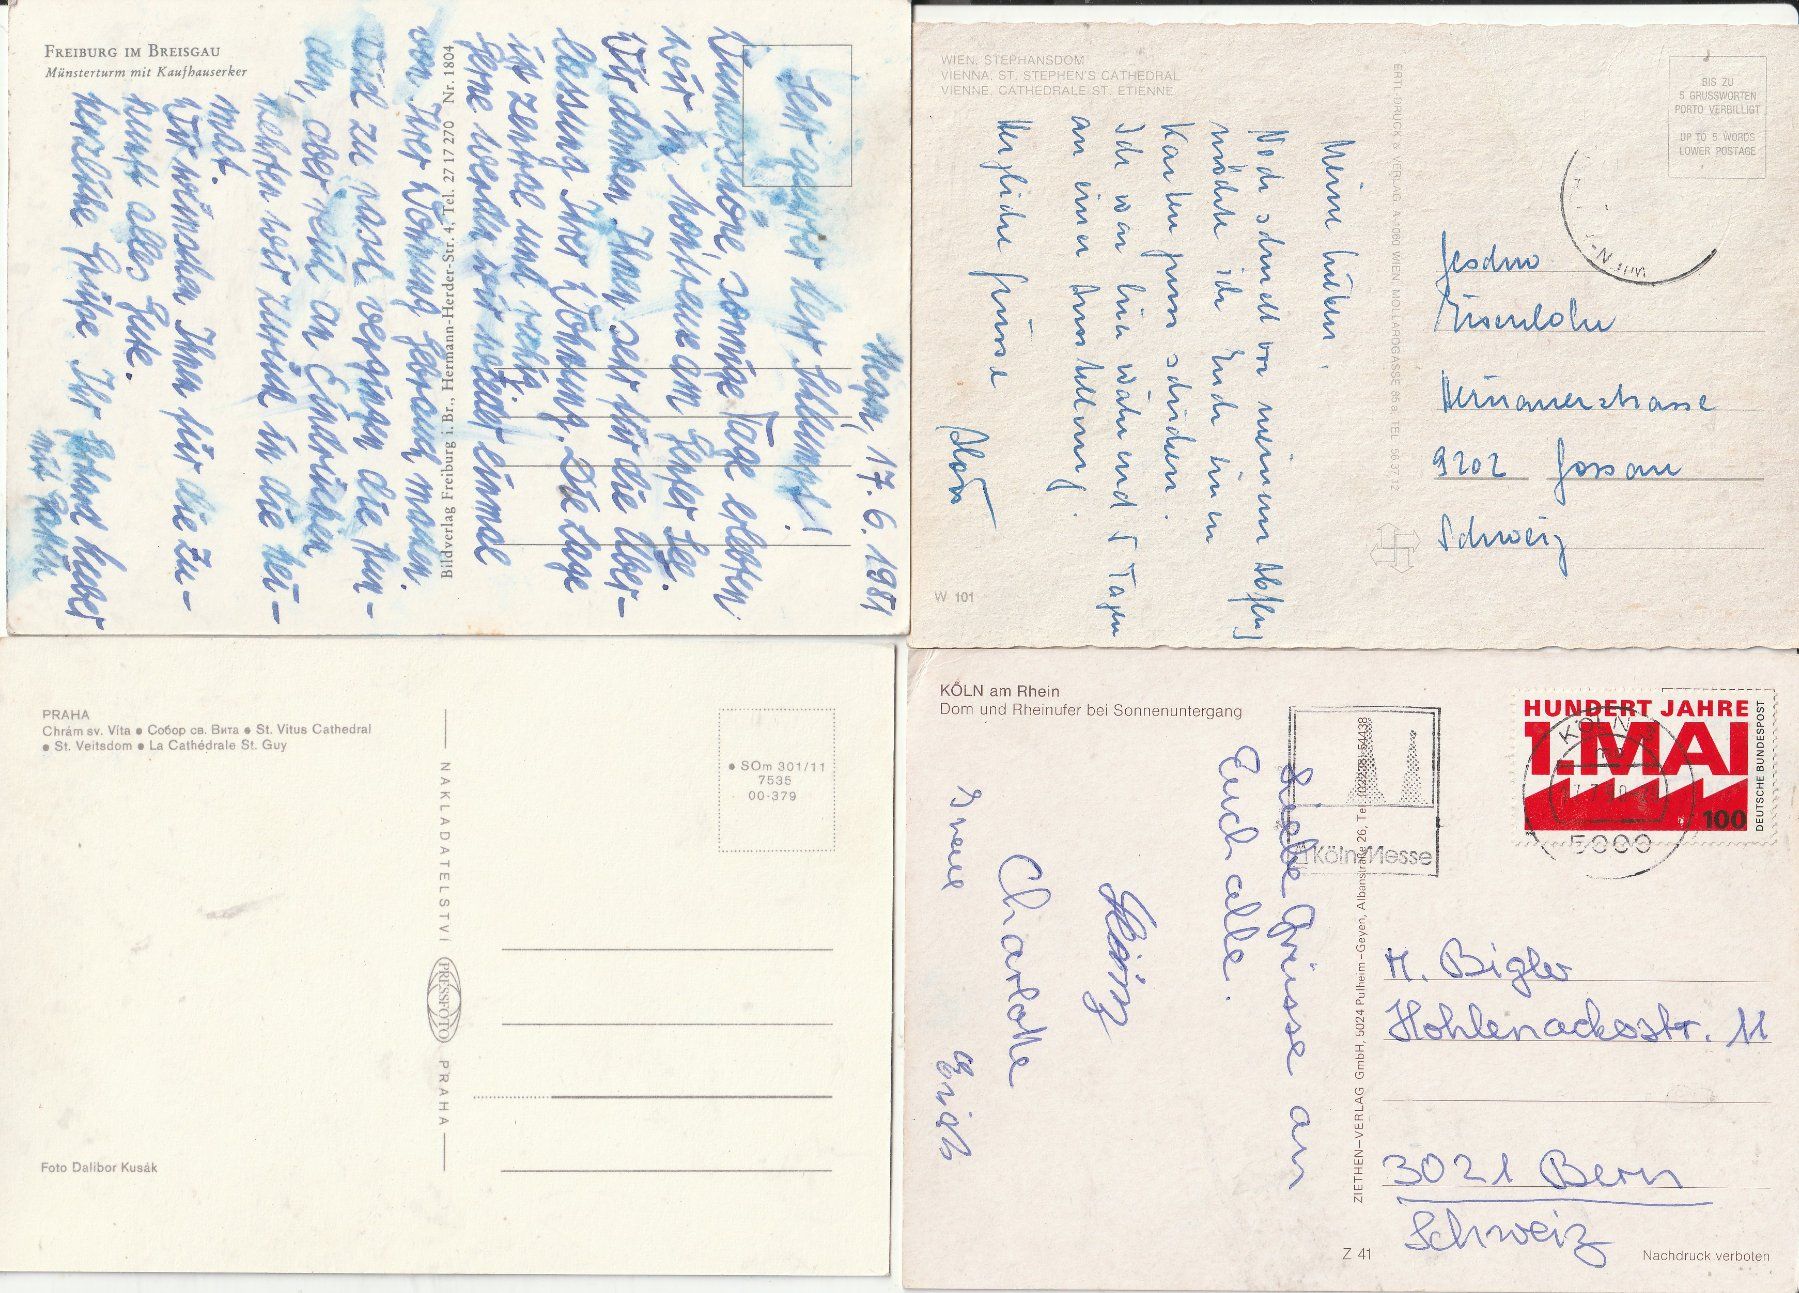 FREIBURG IM BREISGAU
Münsterturm mit Kaufhauserker
Bildverlag Freiburg i. Br., Hermann-Herder-Str. 4, Tel. 27 17 270 Nr. 1804
17. 6. 1981
Sehr geehrter Herr
Wunderschöne, sonnige Tage erleben
wir in Montreux am Genfer See.
Wir danken Ihnen sehr für die Über-
lassung Ihrer Wohnung. Die Lage
ist zentral und ruhig.
Gerne werden wir wieder einmal
von Ihrer Wohnung Gebrauch machen.
Viel zu rasch vergingen die Stun-
den, aber reich an Eindrücken
kehrten wir zurück in die Hei-
mat.
Wir wünschen Ihnen für die Zu-
kunft alles Gute.
Herzliche Grüße Ihr
WIEN, STEPHANSDOM
VIENNA, ST. STEPHEN'S CATHEDRAL
VIENNE, CATHEDRALE ST. ETIENNE
ERTL-DRUCK & VERLAG, A-1060 WIEN, MOLLARDGASSE 85 a, TEL. 56 37 12
BIS ZU
5 GRUSSWORTEN
PORTO VERBILLIGT
UP TO 5 WORDS
LOWER POSTAGE
WIEN
Meine Lieben,
Noch schnell vor meinem Abflug
möchte ich Euch einen
Kartengruss schreiben.
Ich war hier während 5 Tagen
an einer Ausstellung.
Herzliche Grüsse
9202 Gossau
Schweiz
W 101
PRAHA
Chrám sv. Víta ● Собор св. Вита ● St. Vitus Cathedral
● St. Veitsdom ● La Cathédrale St. Guy
NAKLADATELSTVÍ PRESSFOTO PRAHA
● SOm 301/11
7535
00-379
Foto Dalibor Kusák
KÖLN am Rhein
Dom und Rheinufer bei Sonnenuntergang
ZIETHEN-VERLAG GmbH, 5024 Pulheim-Geyen, Albanstraße 26, Tel. (02238) 54438
KölnMesse
HUNDERT JAHRE
1. MAI
100
DEUTSCHE BUNDESPOST
KÖLN
5000
Liebe Grüsse an
Euch alle.
Charlotte
Irene
Erich
M. Bigler
Hohlenackerstr. 11
3021 Bern
Schweiz
Z 41
Nachdruck verboten